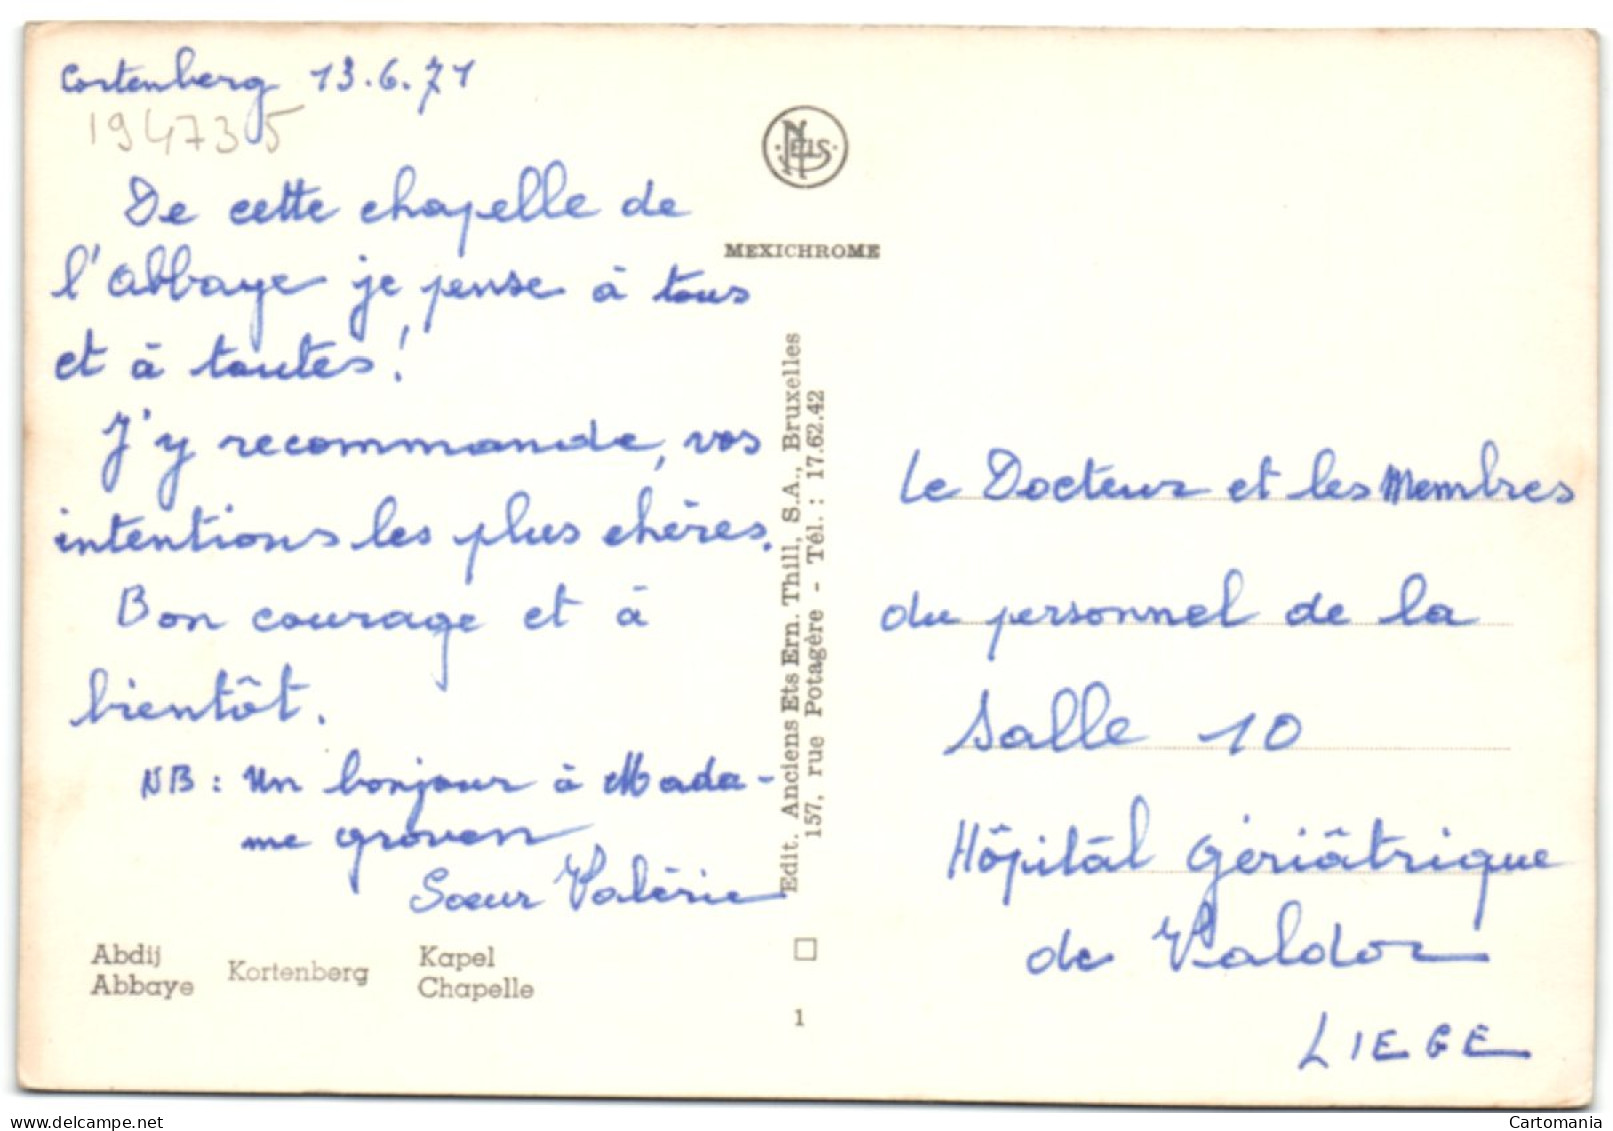 Cortenberg 13.6.71
194735
De cette chapelle de
l'Abbaye je pense à tous
et à toutes !
J'y recommande, vos
intentions les plus chères.
Bon courage et à
bientôt.
NB : Un bonjour à Mada-
me Groven
Soeur Valérie
Abdij
Abbaye
Kortenberg
Kapel
Chapelle
NELS
MEXICHROME
Edit. Anciens Ets Ern. Thill, S.A., Bruxelles
157, rue Potagère - Tél. : 17.62.42
1
Le Docteur et les Membres
du personnel de la
Salle 10
Hôpitâl Gériâtrique
de Valdor
LIEGE
Cartomania
delcampe.net